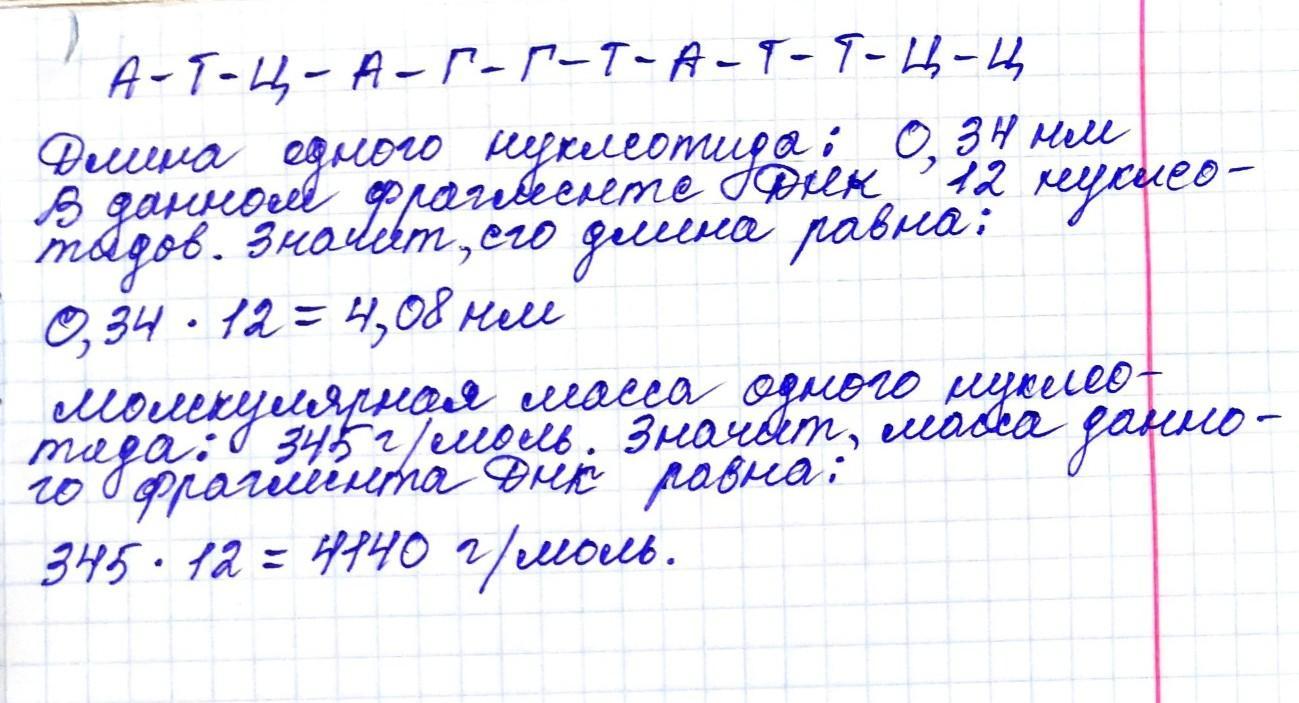 А-Т-Ц-А-Г-Г-Т-А-Т-Т-Ц-Ц
Длина одного нуклеотида: 0,34 нм
В данном фрагменте ДНК 12 нуклео-
тидов. Значит, его длина равна:
0,34 · 12 = 4,08 нм
Молекулярная масса одного нуклео-
тида: 345 г/моль. Значит, масса данно-
го фрагмента ДНК равна:
345 · 12 = 4140 г/моль.